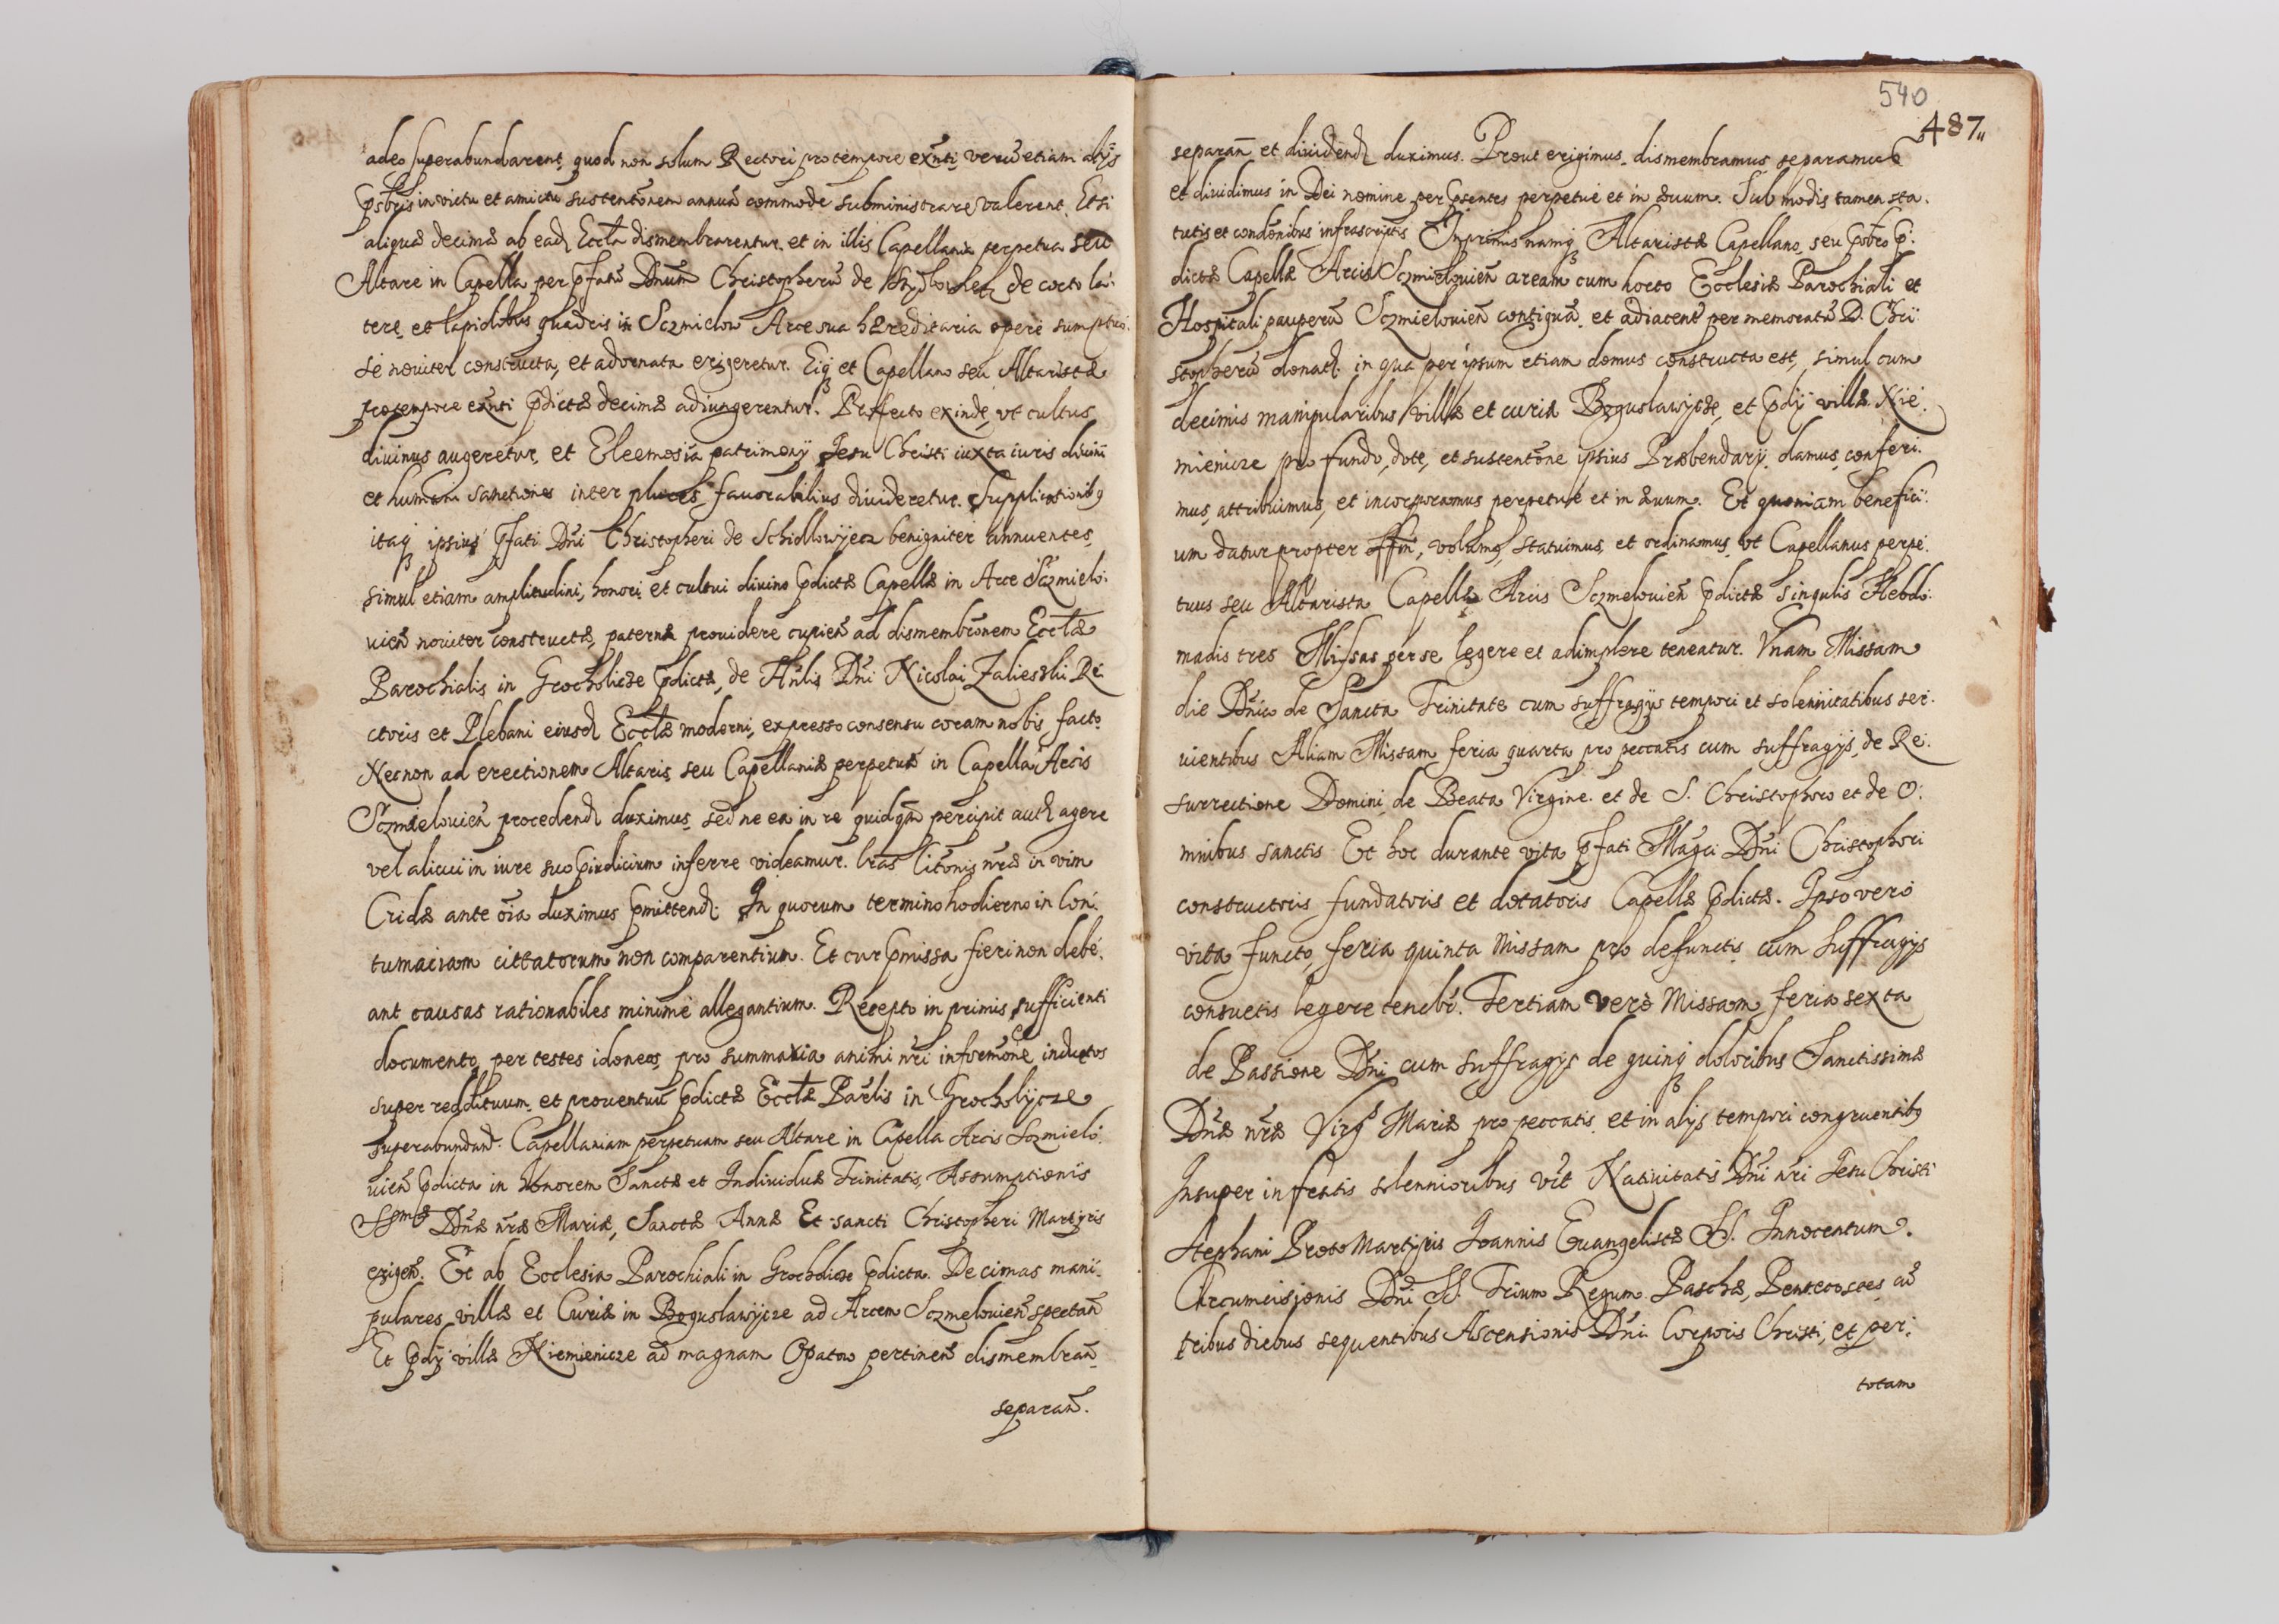 adeo superabundarent, quod non solum Rectori pro tempore exñti, verũetiam alijs
p̃sbris in victu et amictu sustentõnem annuã commode subministrare valerent. Et si
aliquæ decimæ ab ead. Eccľa dismembrarentur. et in illis Capellania perpetua seu
Altare in Capella per p̃fatũ Dñum Christopherũ de de cocto la:
tere, et lapidibus quadris in Sczmielow Arce sua hæreditaria opere sumptuo:
se nouiter constructa, et adornata erigeretur. Eiq3 et Capellano seu Altaristæ
protempore exñti p̃dictæ decimæ adiungerentur. Profecto exinde, vt cultus
diuinus augeretur, et Eleemosiã patrimonij Jesu Christi iuxta iuris diuini
et humani sanctiones inter plures fauorabilius diuideretur. Supplicationib9
itaq3 ipsius p̃fati Dñi Christopheri de Schidlowijecz benigniter annuentes,
simul etiam amplitudini, honori et cultui diuino p̃dictæ Capellæ in Arce Sczmielo:
uieñ nouiter constructæ, paterne prouidere cupieñ ad dismembrõnem Eccľæ
Parochialis in Grocholicze p̃dictæ, de Hñlis Dñi Nicolai Zalieszki Re:
ctoris et Plebani eiusd. Eccľæ moderni, expresso consensu coram nobis facto
Necnon ad erectionem Altaris, seu Capellaniæ perpetuæ in Capella Arcis
Sczmielouieñ procedend. duximus, sed ne ea in re quidq̃ percipit aud. agere
vel alicui in iure suo p̃iudicium inferre videamur. lr̃as Citõnis nr̃æ in vim
Cridæ ante oĩa duximus p̃mittend. In quorum termino hodierno in Con:
tumaciam cittatorum non comparentium. Et cur p̃missa fieri non debe:
ant causas rationabiles minime allegantium. Recepto in primis sufficienti
documento, per testes idoneos, pro summaria animi nr̃i informõne inductos
super reddituum. et prouentuũ p̃dictæ Eccľæ Par̃lis in Grocholijcze
superabundand. Capellaniam perpetuam seu Altare in Capella Arcis Sczmielo:
uieñ p̃dicta in honorem Sanctæ et Indiuiduæ Trinitatis, Assumptionis
SSmæ Dñæ nr̃æ Mariæ, Sanctæ Annæ Et sancti Christopheri Martijris
erigeñ. Et ab Ecclesia Parochiali in Grocholicze p̃dicta. Decimas mani:
pulares villæ et Curiæ in Boguslawijcze ad Arcem Sczmelouieñ spectañ
Et p̃dij villæ Niemienicze ad magnam Opatow pertineñ dismembrañ
separañ.
540
487
separañ et diuidend. duximus. Prout erigimus, dismembramus, separamus
et diuidimus in Dei nomine per p̃sentes perpetue et in æuum. Sub modis tamen sta:
tutis et condõnibus infrascriptis. Inprimis namq3 Altaristæ Capellano, seu p̃sbro p̃:
dictæ Capellæ Arcis Sczmielouieñ aream cum horto Ecclesiæ Parochiali et
Hospitali pauperũ Sczmielouieñ contiguã. et adiacent per memoratũ D. Chri:
stopherũ donat. in qua per ipsum etiam domus constructa est, simul cum
decimis manipularibus villæ et curiæ Boguslawijcze, et p̃dij villæ Nie:
mienicze pro fundo, dote, et sustentõne ipsius Præbendarij damus, conferi:
mus, attribuimus, et incorporamus perpetue et in æuum. Et quoniam benefici:
um datur propter offm̃, volumq, statuimus, et ordinamus, vt Capellanus perpe:
tuus seu Altarista Capellæ Arcis Sczmelouieñ p̃dictæ singulis Hebdo:
madis tres Missas per se legere et adimplere teneatur. Vnam Missam
die Dñico de Sancta Trinitate cum suffragijs tempori et solennitatibus ser:
uientibus Aliam Missam feria quarta pro peccatis cum suffragijs, de Re:
surrectione Domini, de Beata Virgine. et de S. Christophoro et de O:
mnibus sanctis Et hoc durante vita p̃fati Magci Dñi Christophori
constructoris fundatoris et dotatoris Capellæ p̃dictæ. Ipso vero
vita functo, feria quinta Missam pro defunctis cum suffragijs
consuetis legere tenebr. Tertiam verò Missam feria sexta
de Passione Dñi cum suffragijs de quinq3 doloribus Sanctissimæ
Dñæ nr̃æ Virgs Mariæ pro peccatis. et in alijs tempori congruentib9
Insuper in festis solennioribus vũt Natiuitatis Dñi nr̃i Jesu Christi
Stephani ProtoMartijris Joannis Euangelistæ SS. Innocentum.
Circumcisionis Dñi SS. Trium Regum. Paschæ, Pentecostes, cũ
tribus diebus sequentibus Ascensionis Dñi Corporis Christi, et per:
totam